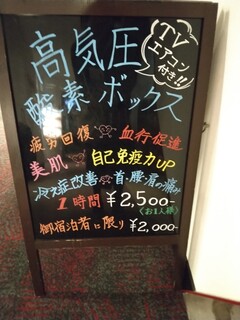 高気圧
酸素ボックス
TV
エアコン
付き!!
疲労回復 血行促進
美肌 自己免疫力UP
冷え症改善 首・腰・肩の痛み
1時間 ¥2,500-
(お1人様)
御宿泊者に限り ¥2,000-